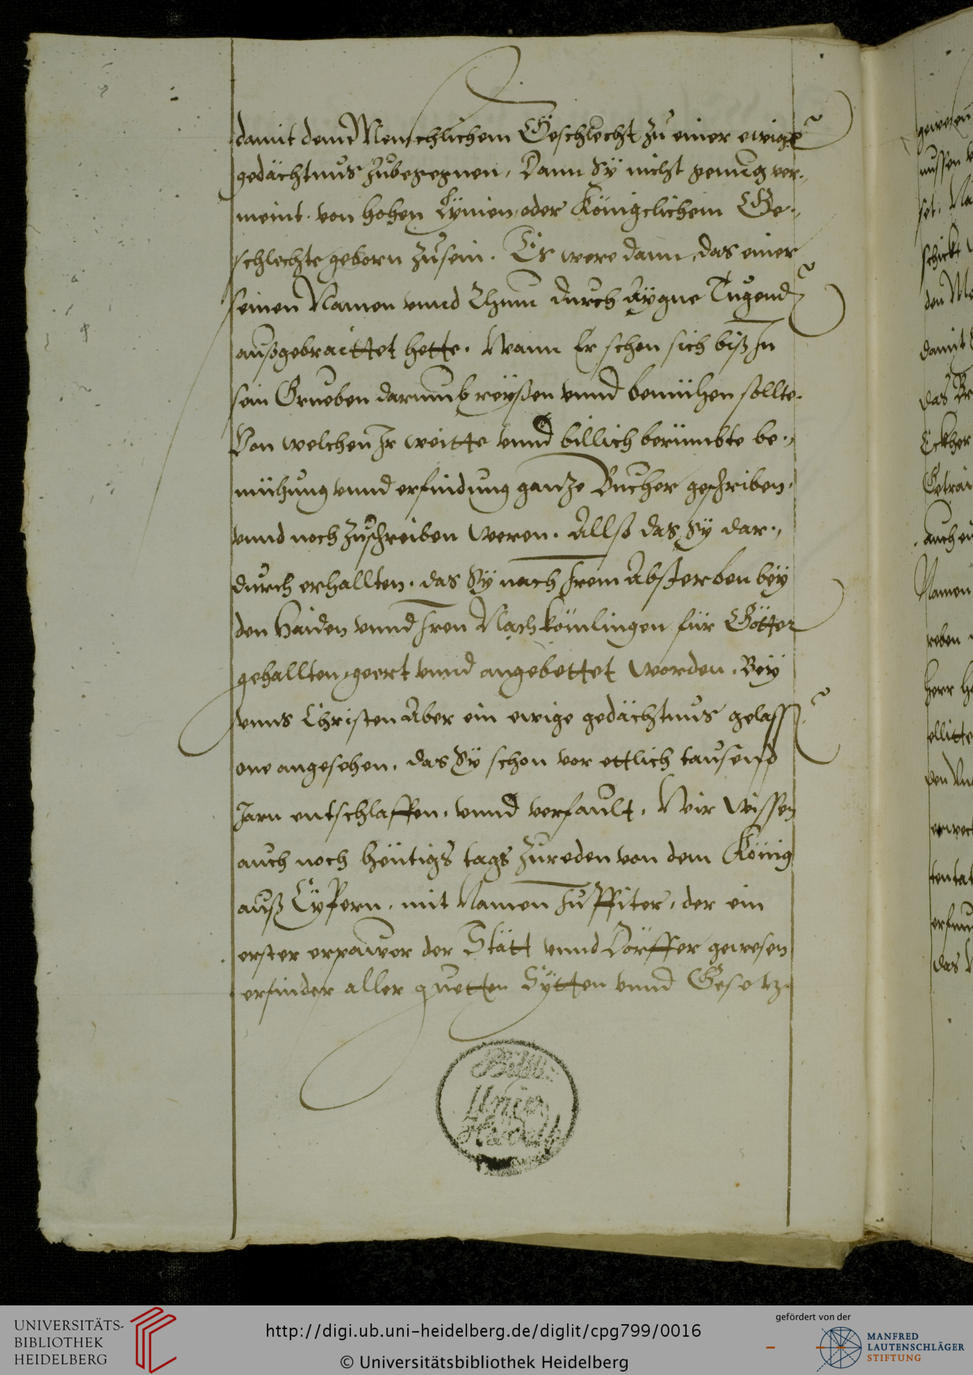 damit dem Menschlichem Geschlecht zu einer ewige
gedächtnus zubegegnen, Dann Sy nicht genug ver-,
meint. von hohen Lÿnien, oder Königclichem Ge-,
schlechte geborn zusein. Es were dann, das einer
seinen Namen vnnd Thuu durch Aÿgne Tugend
außgebraittet hette. Wann Er schon sich biß In
sein Grueben darumb reyßen vnnd bemühen sollte.
Von welchen Ir weitte vnnd billich berümbte be-,
mühung vnnd erfindung gantze Bucher geschriben,
vnnd noch zuschreiben weren. Allß das Sy dar-,
durch erhallten. das Sy nach Irem Absterben bey
den Haiden vnnd Iren Nachkömlingen für Götter
gehallten, geert vnnd angebettet worden. Beÿ
vnns Christen Aber ein ewige gedächtnus gelass
one angesehen. das Sÿ schon vor ettlich tausend
Jarn entschlaffen, vnnd verfault. Wir wissen
auch noch heütigs tags zureden von dem König
auß Cÿpern, mit Namen Juppiter, der ein
erster erpawer der Stätt vnnd Dörffer gewesen
erfinder aller guetten Sÿtten vnnd Gesetz.
Bibl.
Univ.
Heidelb.
damit
Namen
reben
Herr
das
UNIVERSITÄTS-
BIBLIOTHEK
HEIDELBERG
http://digi.ub.uni-heidelberg.de/diglit/cpg799/0016
© Universitätsbibliothek Heidelberg
gefördert von der
MANFRED
LAUTENSCHLÄGER
STIFTUNG